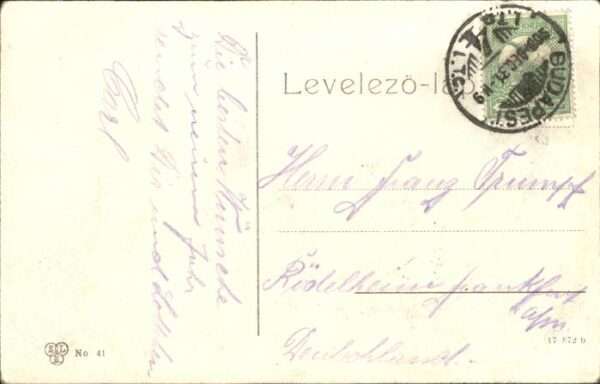 Die besten Wünsche
zum neuen Jahr
sendet Dir und
Emil
Levelező-lap
BUDAPEST
Herrn Franz Trumpf
Rödelheim Frankfurt
a/m
Deutschland.
No 41
17 872 b